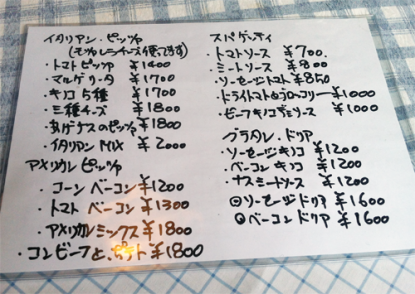 イタリアン・ピッツァ
(モッツァレラチーズ使ってます)
・トマトピッツァ ¥1400
・マルゲリータ ¥1700
・キノコ5種 ¥1700
・三種チーズ ¥1800
・あげナスのピッツァ ¥1800
・イタリアンMIX ¥2000
アメリカンピッツァ
・コーンベーコン ¥1200
・トマトベーコン ¥1300
・アメリカンミックス ¥1800
・コンビーフと ¥1800
スパゲッティ
・トマトソース ¥700.
・ミートソース ¥800
・ソーセージトマト ¥850
・ドライトマトとブロッコリー ¥1000
・ビーフキノコデミソース ¥1000
グラタン・ドリア
・ソーセージキノコ ¥1200
・ベーコンキノコ ¥1200
・ナスミートソース ¥1200
◎ソーセージドリア ¥1600
◎ベーコンドリア ¥1600